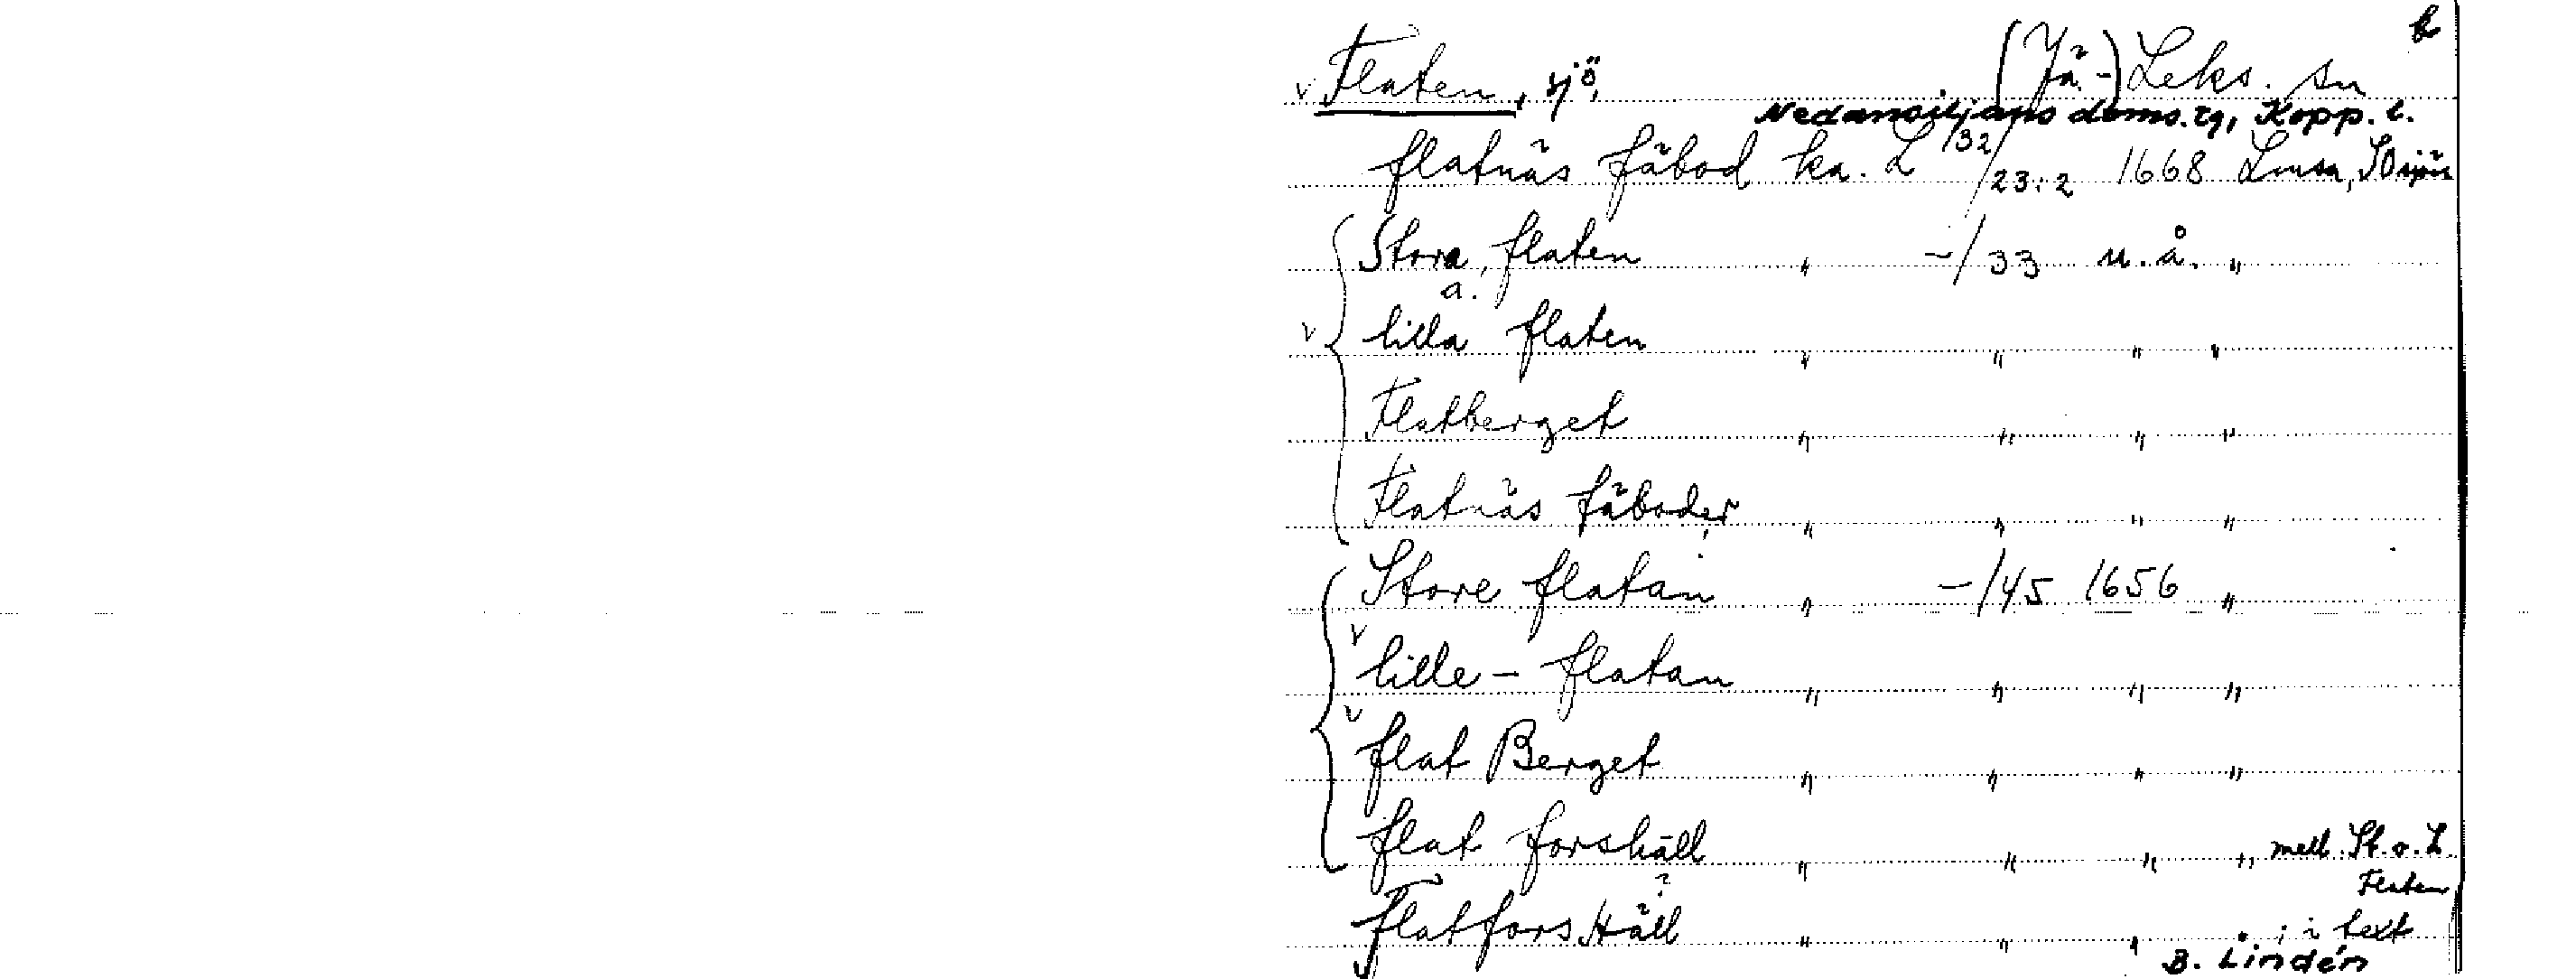 b
v Flaten, sjö, (Jä-) Leks. sn
Nedansiljans doms.rg, Kopp. l.
flatnäs fäbod ka. L 132/23:2 1668 Lmsa,
Stora flaten " -/33 u.å. "
a.
v lilla flaten " " " "
Flatberget " " " "
Flatnäs fäboder " " " "
Store flatan " -/45 1656 "
v lille - flatan " " " "
v flat Berget " " " "
flat forshäll " " " ", mell. St. o. L.
Flaten
flatfors Häll " " " "; i text
B. Lindén